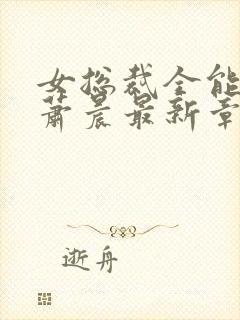 女总裁全能
萧晨最新章
逝舟